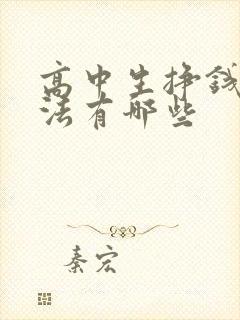 高中生挣钱
法有哪些
秦宏